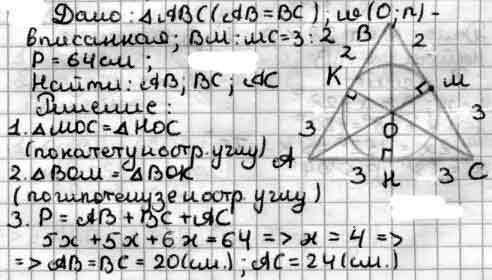 Дано: △ABC (AB=BC); ω(O; r) -
вписанная; BM : MC = 3 : 2
P = 64 см;
Найти: AB; BC; AC
Решение:
1. △MOC = △HOC
(по катету и остр. углу)
2. △BOM = △BOK
(по гипотенузе и остр. углу)
3. P = AB + BC + AC
5x + 5x + 6x = 64 => x = 4 =>
=> AB = BC = 20 (см.); AC = 24 (см.)
B
2
2
K
M
3
3
O
A
3
H
3
C